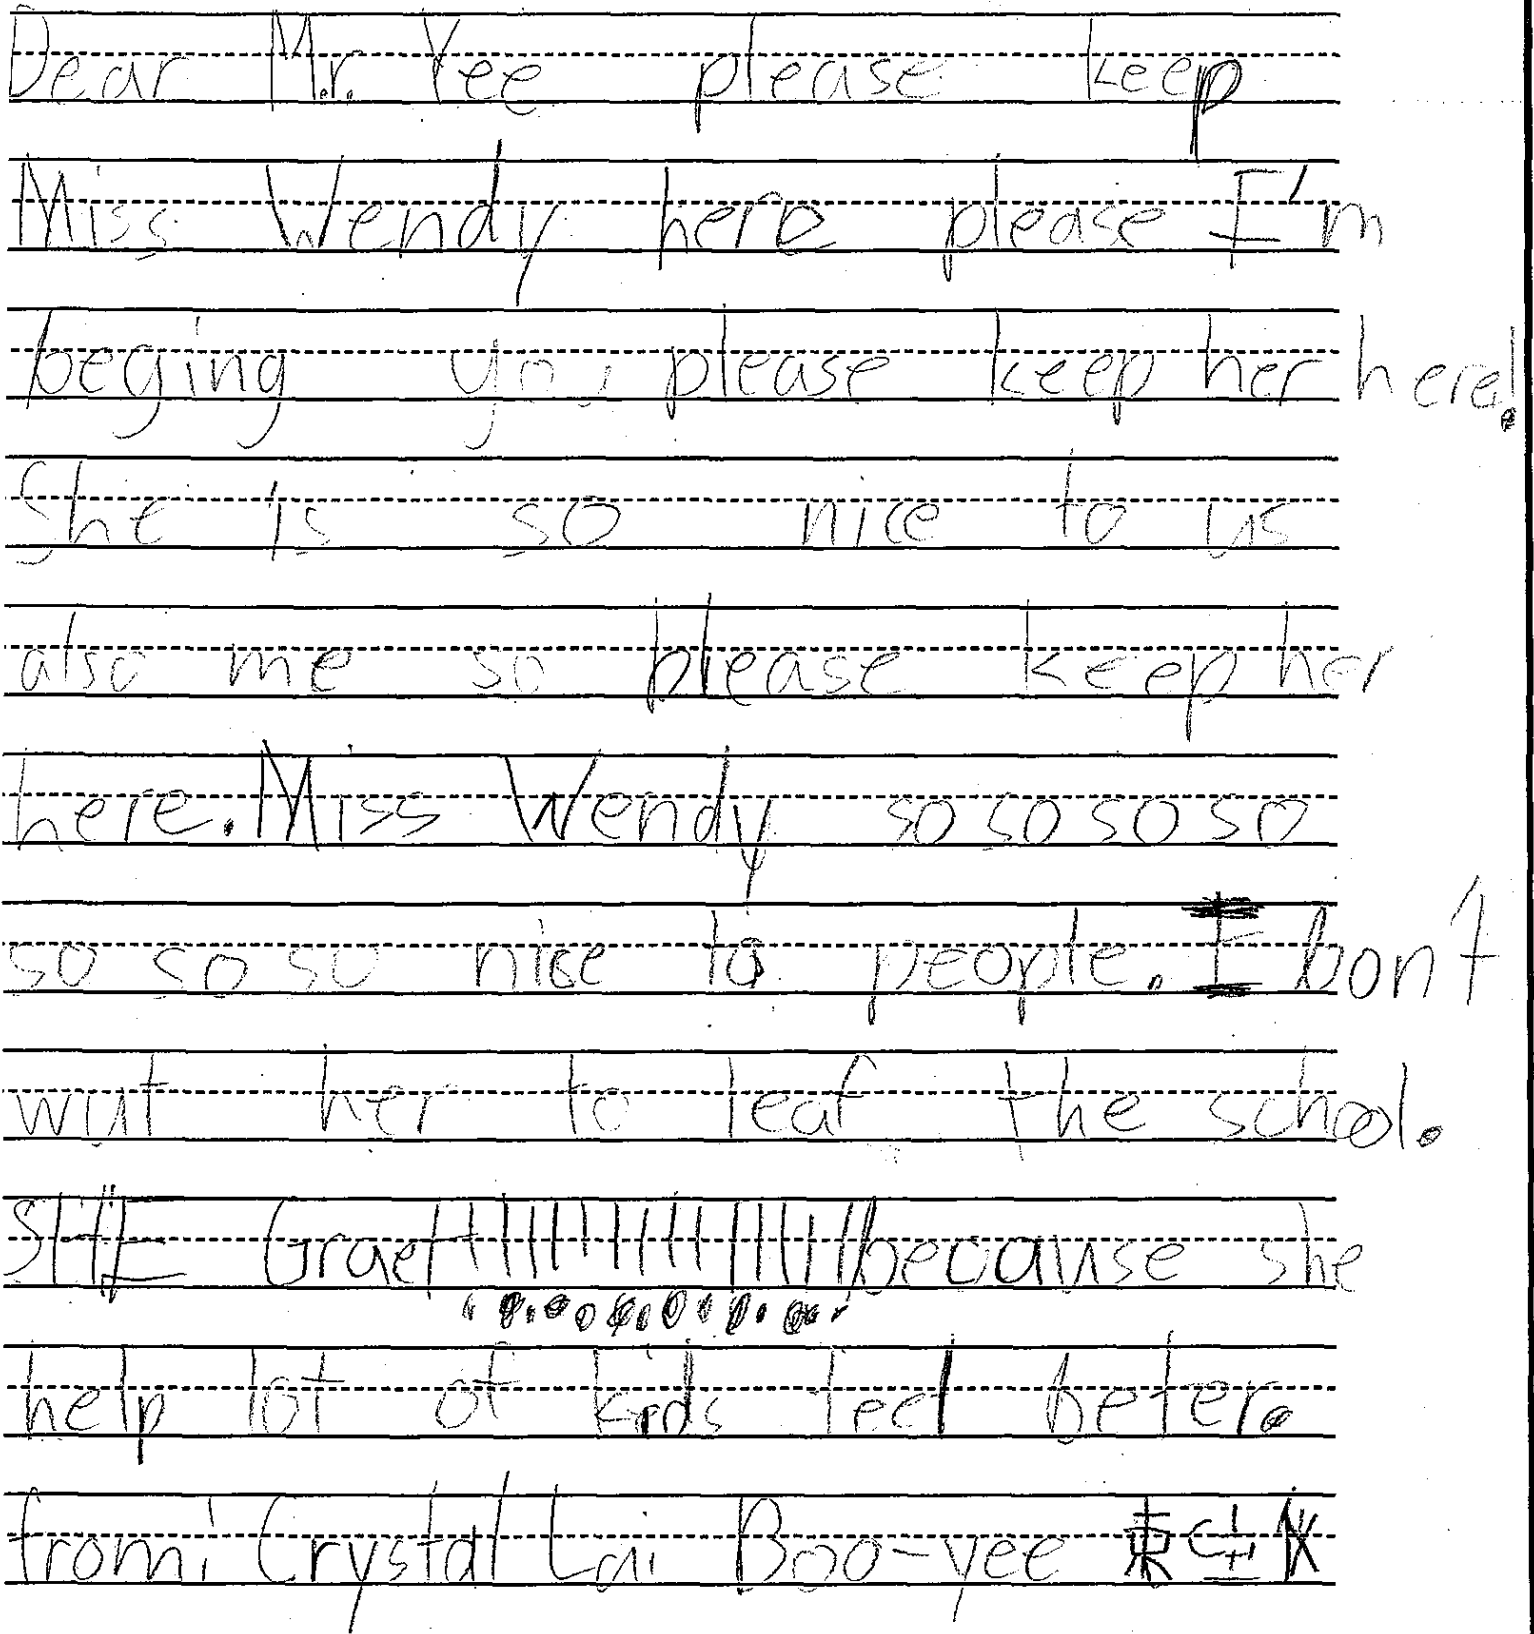 Dear M.r. Yee please keep
Miss Wendy here please I'm
beging you please keep her here!
She is so nice to us
also me so please keep her
here. Miss Wendy so so so so
so so so nice to people. I bon't
wut her to leaf the school.
SHE Graet!!!!!!!!!!!!!!! because she
help lot of kids feel beter.
from: Crystal Lai Boo-yee